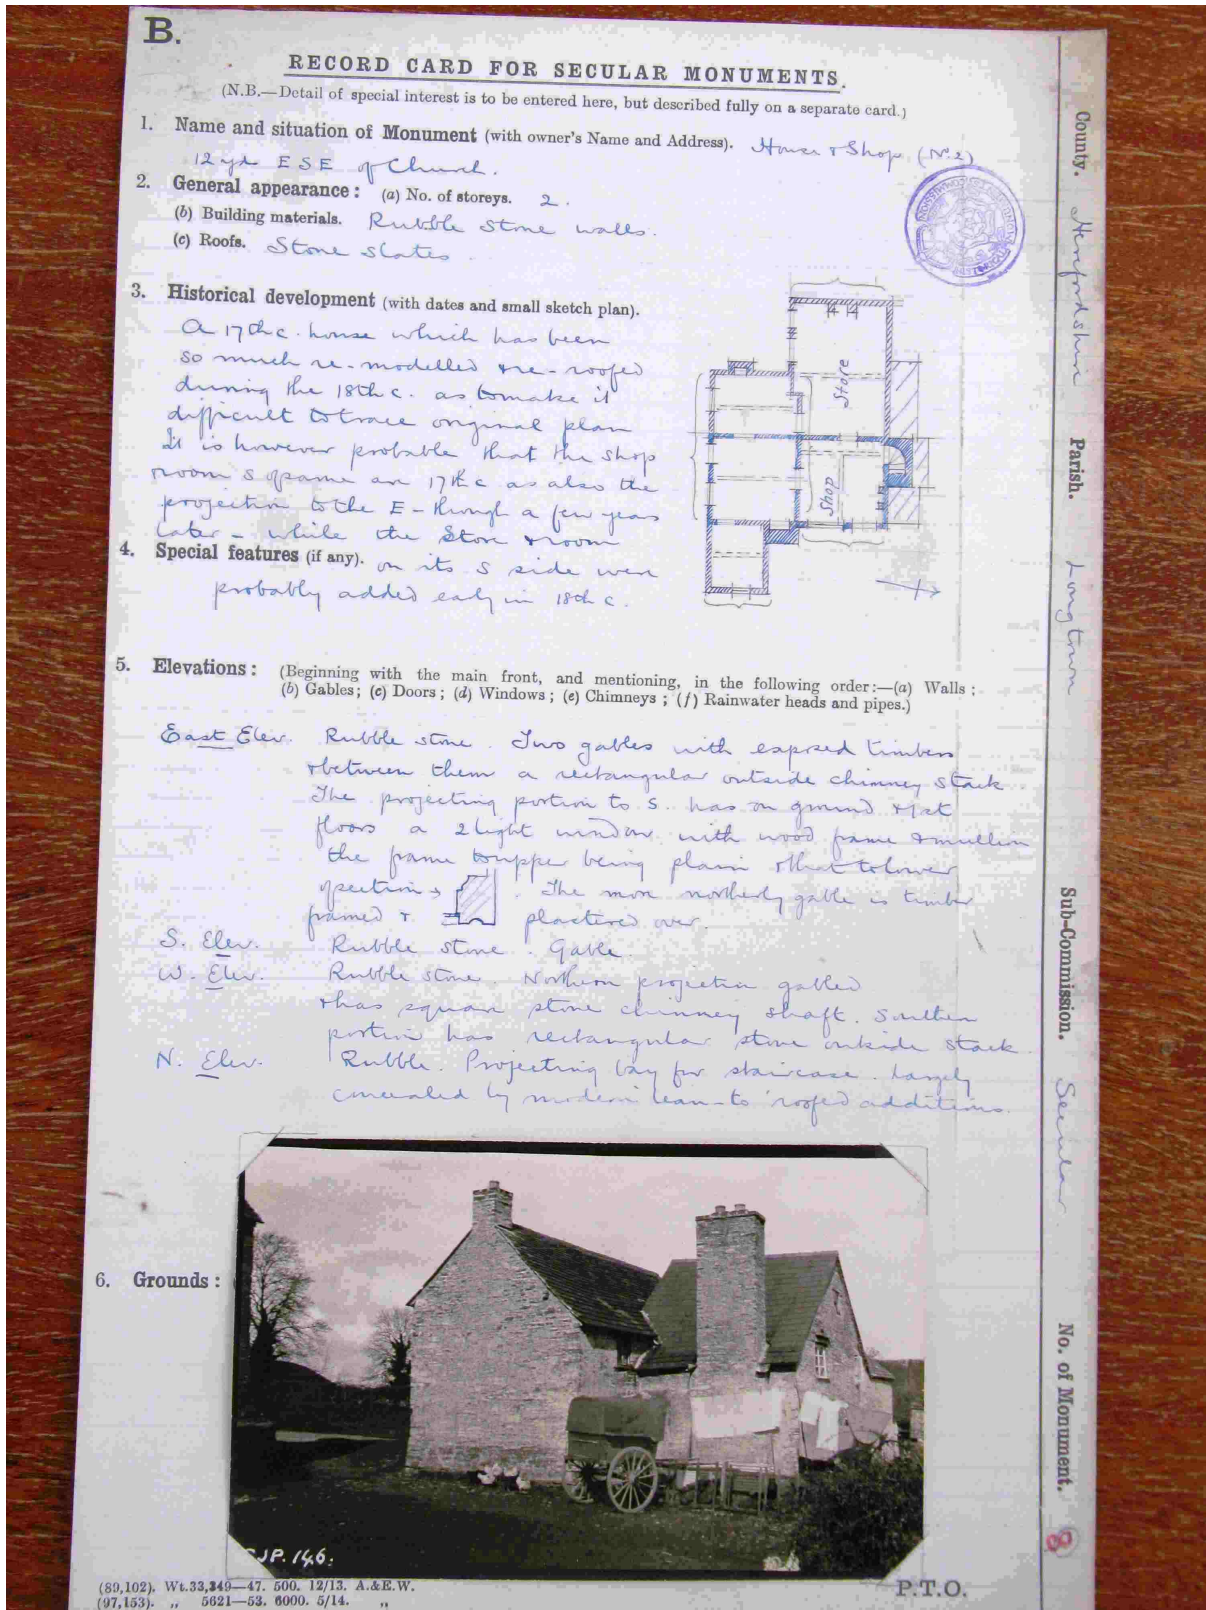 B.
RECORD CARD FOR SECULAR MONUMENTS.
(N.B.—Detail of special interest is to be entered here, but described fully on a separate card.)
1. Name and situation of Monument (with owner's Name and Address). House & Shop (No. 2)
12 yd ESE of Church.
2. General appearance: (a) No. of storeys. 2.
(b) Building materials. Rubble stone walls.
(c) Roofs. Stone slates.
3. Historical development (with dates and small sketch plan).
A 17th c. house which has been
so much re-modelled & re-roofed
during the 18th c. as to make it
difficult to trace original plan
It is however probable that the shop
room S of same are 17th c as also the
projection to the E - through a few years
later - while the Store & room
4. Special features (if any). on its S side were
probably added early in 18th c.
Store
Shop
5. Elevations: (Beginning with the main front, and mentioning, in the following order:—(a) Walls;
(b) Gables; (c) Doors; (d) Windows; (e) Chimneys; (f) Rainwater heads and pipes.)
East Elev. Rubble stone. Two gables with exposed timbers
& between them a rectangular outside chimney stack.
The projecting portion to S. has on ground & 1st
floors a 2 light window with wood frame & mullion
the frame to upper being plain & that to lower
of section → . The more northerly gable is timber
framed & plastered over.
S. Elev. Rubble stone. Gable.
W. Elev. Rubble stone. Northern projection gabled
& has square stone chimney shaft. Southern
portion has rectangular stone outside stack.
N. Elev. Rubble. Projecting bay for staircase. Largely
concealed by modern lean-to roofed additions.
6. Grounds:
JP. 146.
(89,102). Wt.33,349—47. 500. 12/13. A.&E.W.
(97,153). „ 5621—53. 6000. 5/14. „
P.T.O.
County. Herefordshire
Parish. Longtown
Sub-Commission. Secular
No. of Monument. 8